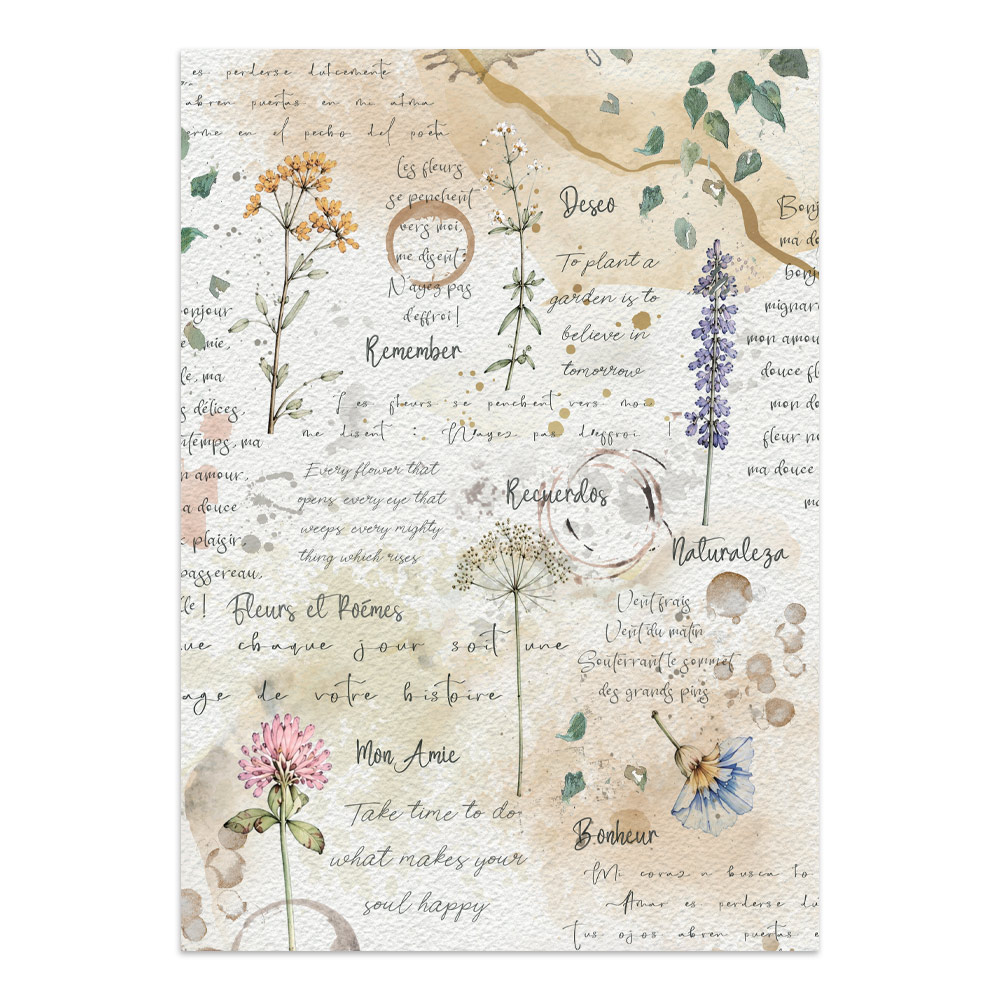 es perderse dulcemente
abren puertas en mi alma
erme en el pecho del poeta
Les fleurs
se penchent
vers moi,
me disent:
N'ayez pas
d'effroi!
Remember
Deseo
To plant a
garden is to
believe in
tomorrow
Les fleurs se penchent vers moi
me disent : N'ayez pas d'effroi !
Bonj
ma do
bonj
mignar
mon amou
douce fl
mon do
fleur n
ma douce
m
onjour
mie,
le, ma
s délices,
ntemps, ma
n amour,
a douce
plaisir,
passereau,
le!
Every flower that
opens, every eye that
weeps, every mighty
thing which rises
Recuerdos
Naturaleza
Fleurs et Poémes
ue chaque jour soit une
age de votre histoire
Vent frais
Vent du matin
Souterrant le sommet
des grands pins
Mon Amie
Take time to do
what makes your
soul happy
Bonheur
Mi coraz n busca lo
Amar es perderse du
Tus ojos abren puertas e